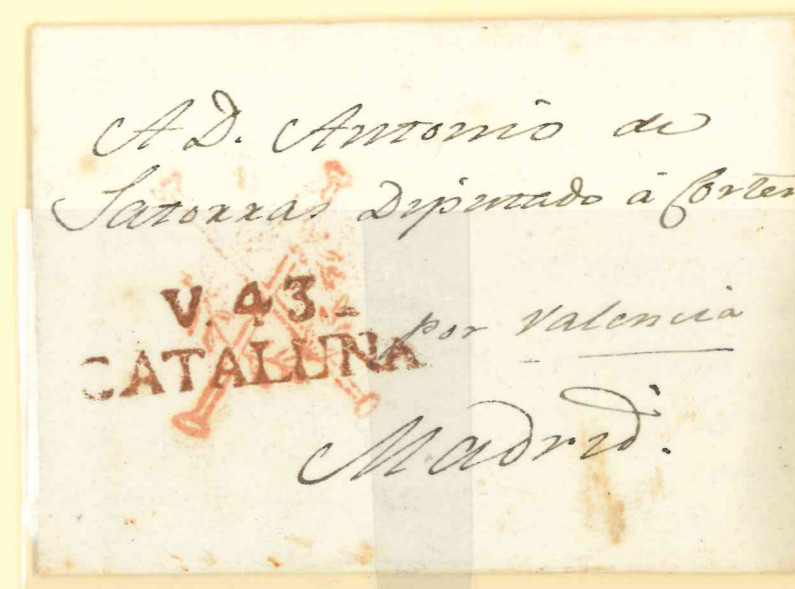 A D. Antonio de
Satorras Diputado à Cortes
V. 43.
CATALUÑA
por Valencia
Madrid.